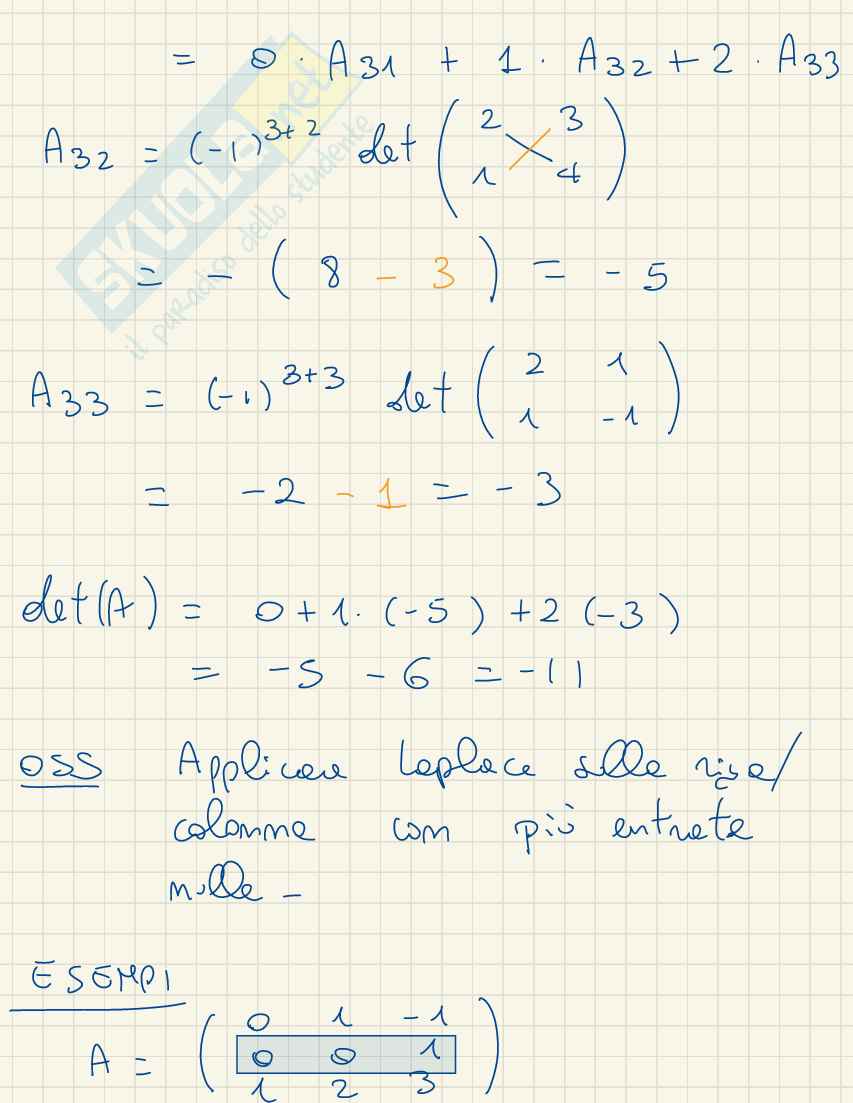 = 0 · A31 + 1 · A32 + 2 · A33
A32 = (-1)^3+2 det ( 2 3
1 4 )
= - ( 8 - 3 ) = - 5
A33 = (-1)^3+3 det ( 2 1
1 -1 )
= -2 - 1 = - 3
det(A) = 0 + 1 · (-5) + 2 (-3)
= -5 - 6 = -11
OSS Applicare Laplace alla riga/
colonna con più entrate
nulle -
ESEMPI
A = ( 0 1 -1
0 0 1
1 2 3 )
SKUOLA.net
il paradiso dello studente